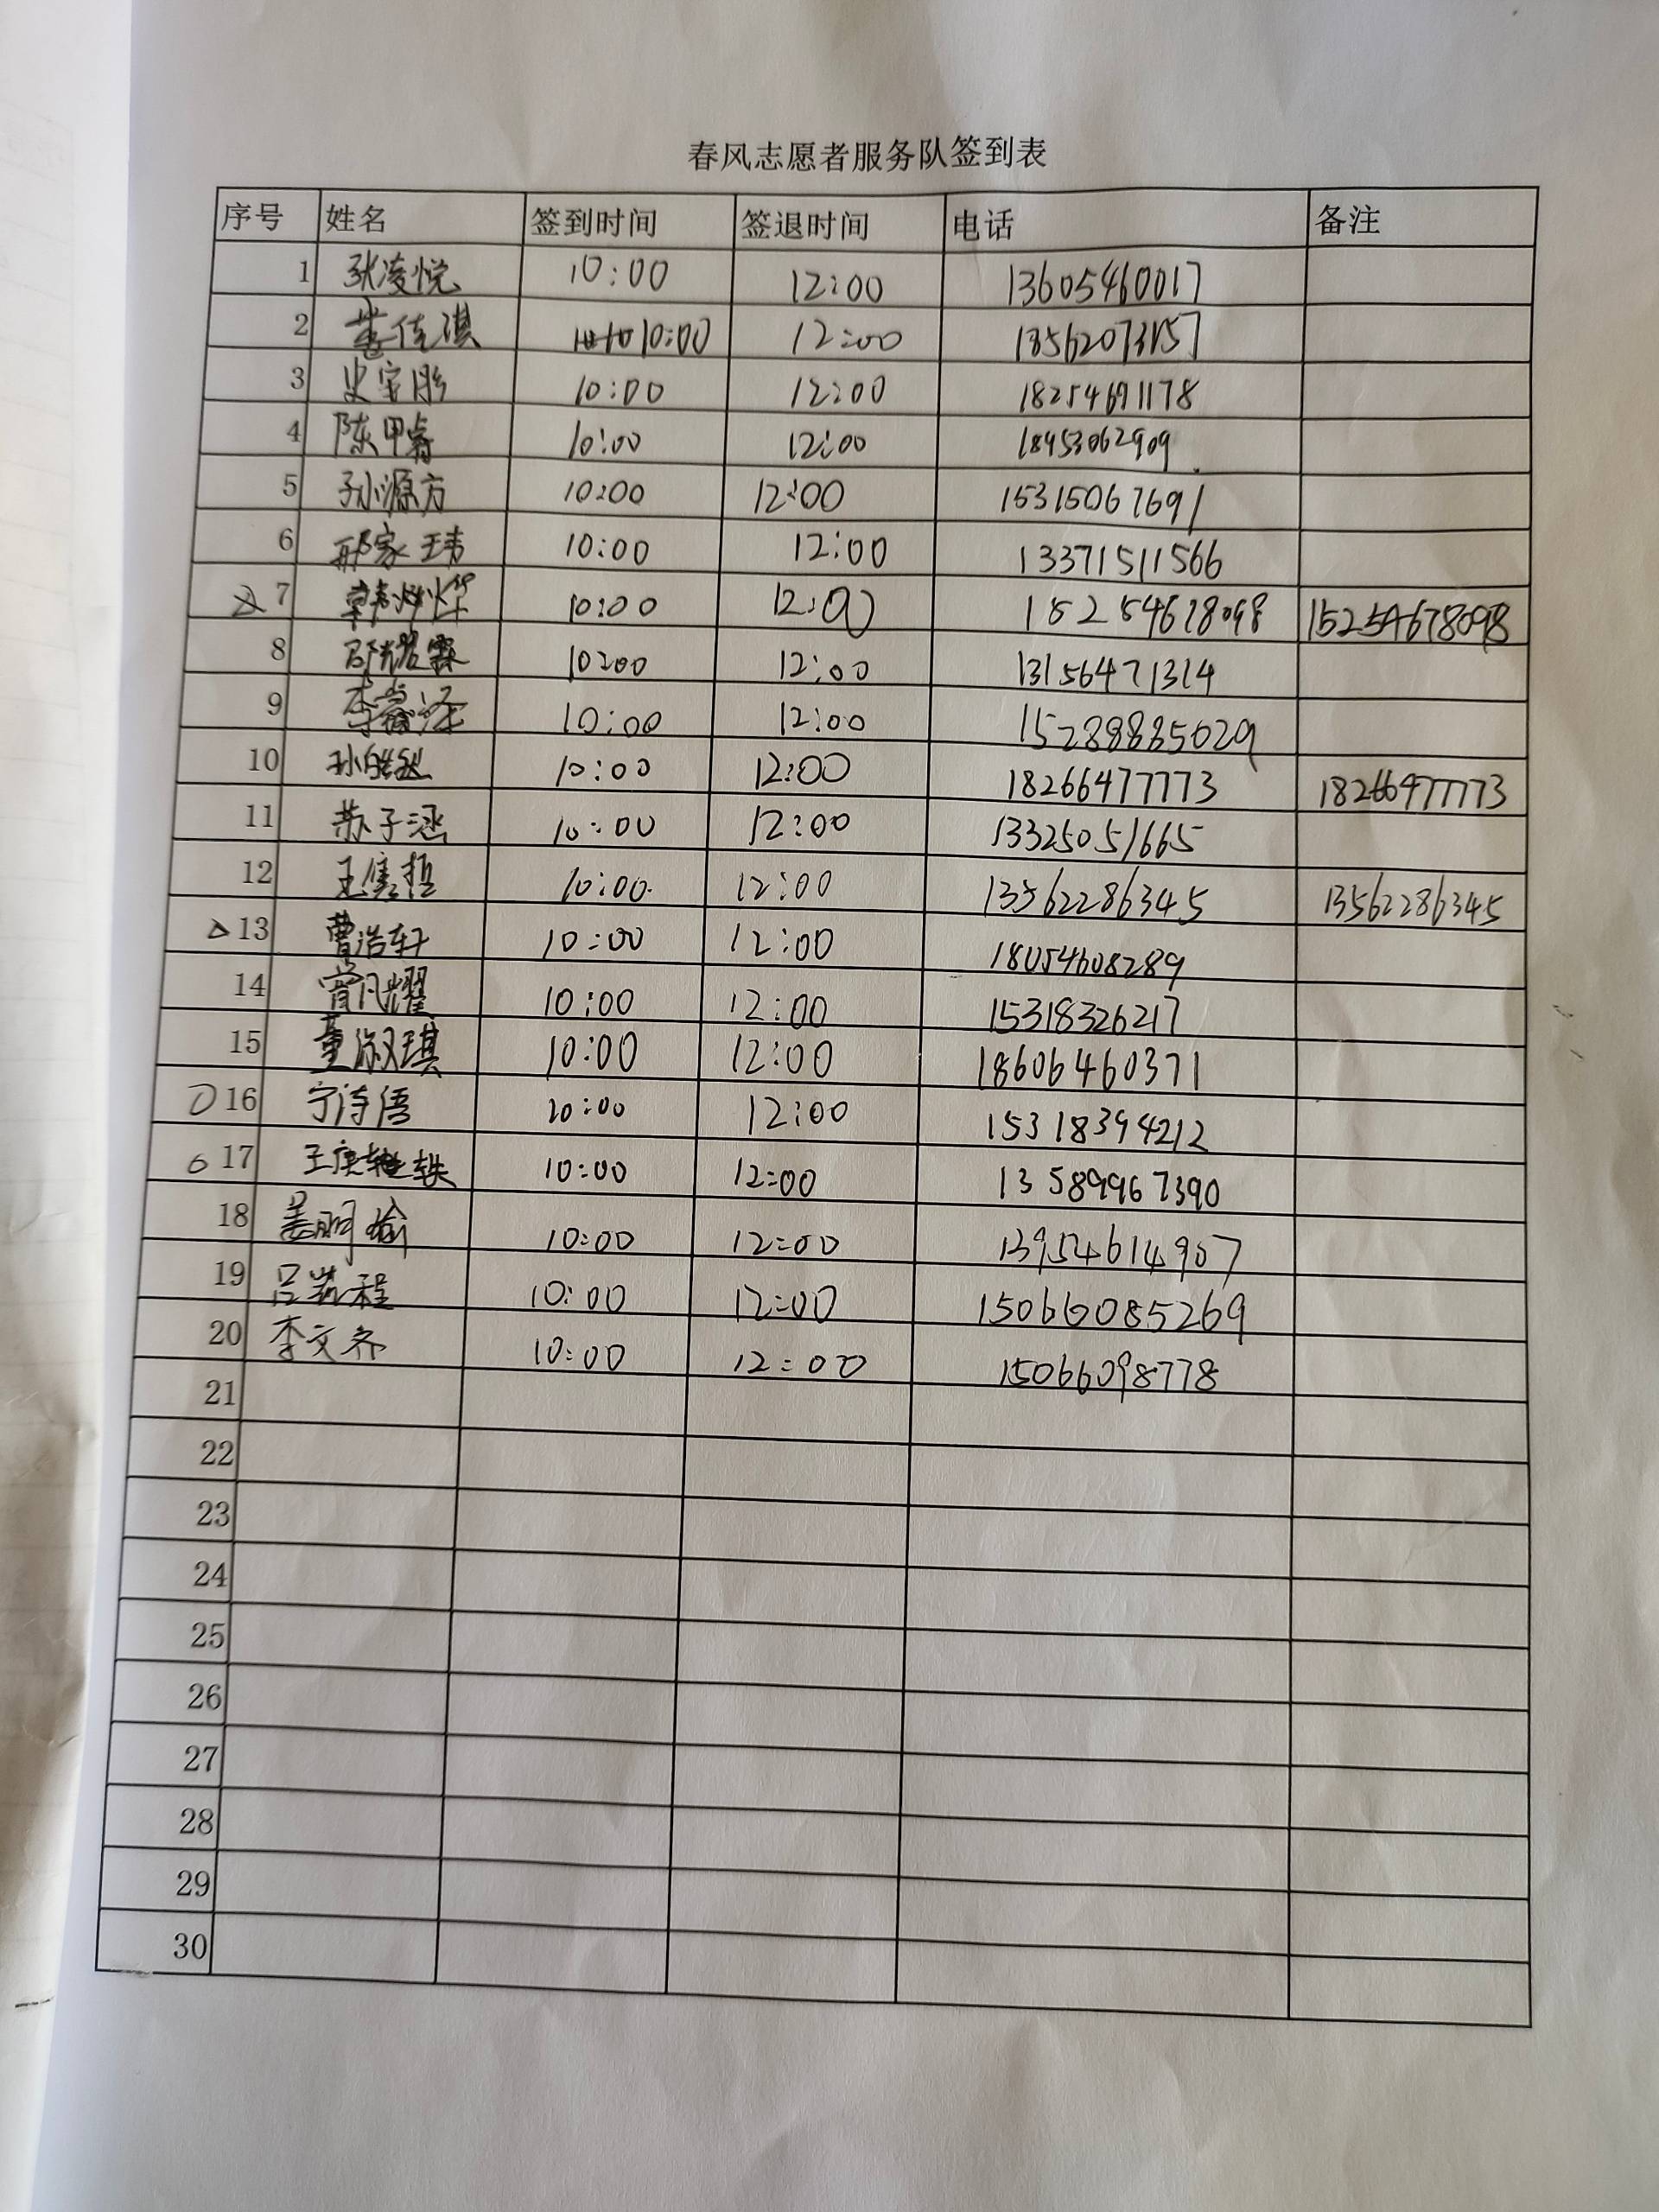 春风志愿者服务队签到表
序号 姓名 签到时间 签退时间 电话 备注
1 张凌悦 10:00 12:00 13605460017
2 董佳琪 10:00 12:00 18562073157
3 史宝彤 10:00 12:00 18254691178
4 陈甲睿 10:00 12:00 18453062909
5 孙源方 10:00 12:00 15315067691
6 邢家玮 10:00 12:00 13371511566
7 韩烨 10:00 12:00 15254678098 15254678098
8 10:00 12:00 13156471314
9 李睿泽 10:00 12:00 15288885029
10 孙皓然 10:00 12:00 18266477773 18266477773
11 苏子涵 10:00 12:00 13325051665
12 王隽哲 10:00 12:00 13562286345 13562286345
13 曹浩轩 10:00 12:00 18054608289
14 10:00 12:00 15318326217
15 董淑琪 10:00 12:00 18606460371
16 宁诗语 10:00 12:00 15318394212
17 王庚轶 10:00 12:00 13589967390
18 姜明瑜 10:00 12:00 13954614907
19 吕凯程 10:00 12:00 15066085269
20 李文齐 10:00 12:00 15066098778
21
22
23
24
25
26
27
28
29
30